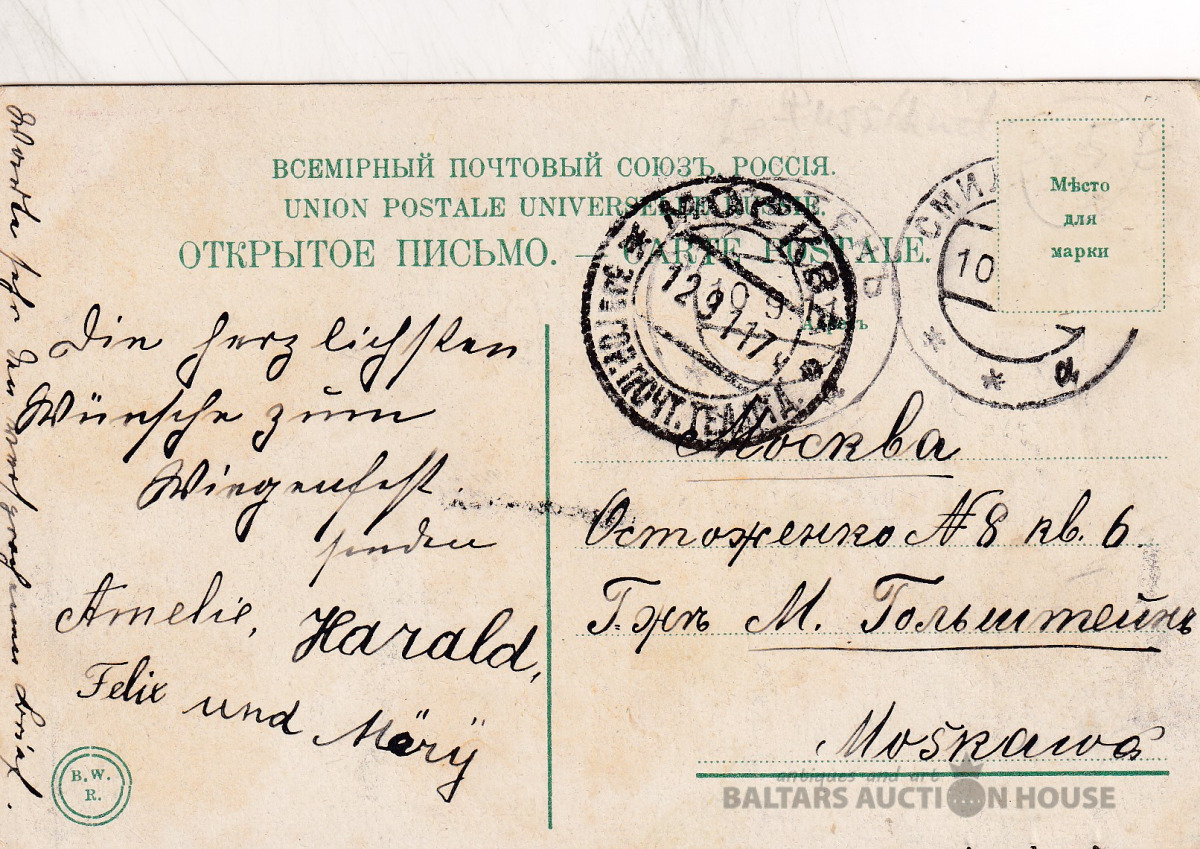 ВСЕМІРНЫЙ ПОЧТОВЫЙ СОЮЗЪ, РОССІЯ.
UNION POSTALE UNIVERSELLE RUSSIE.
ОТКРЫТОЕ ПИСЬМО. — CARTE POSTALE.
Мѣсто
для
марки
МОСКВА
12 9 17
ГОР. ПОЧТ. ТЕЛ.
СМИЛ
10
а
Die herzlichsten
Wünsche zum
Wiegenfest
senden
Amelie, Harald,
Felix und Märÿ
Москва
Остоженко № 8 кв. 6.
Г-жѣ М. Гольштейнъ
Moškawa
B. W.
R.
antiques and art
BALTARS AUCTION HOUSE